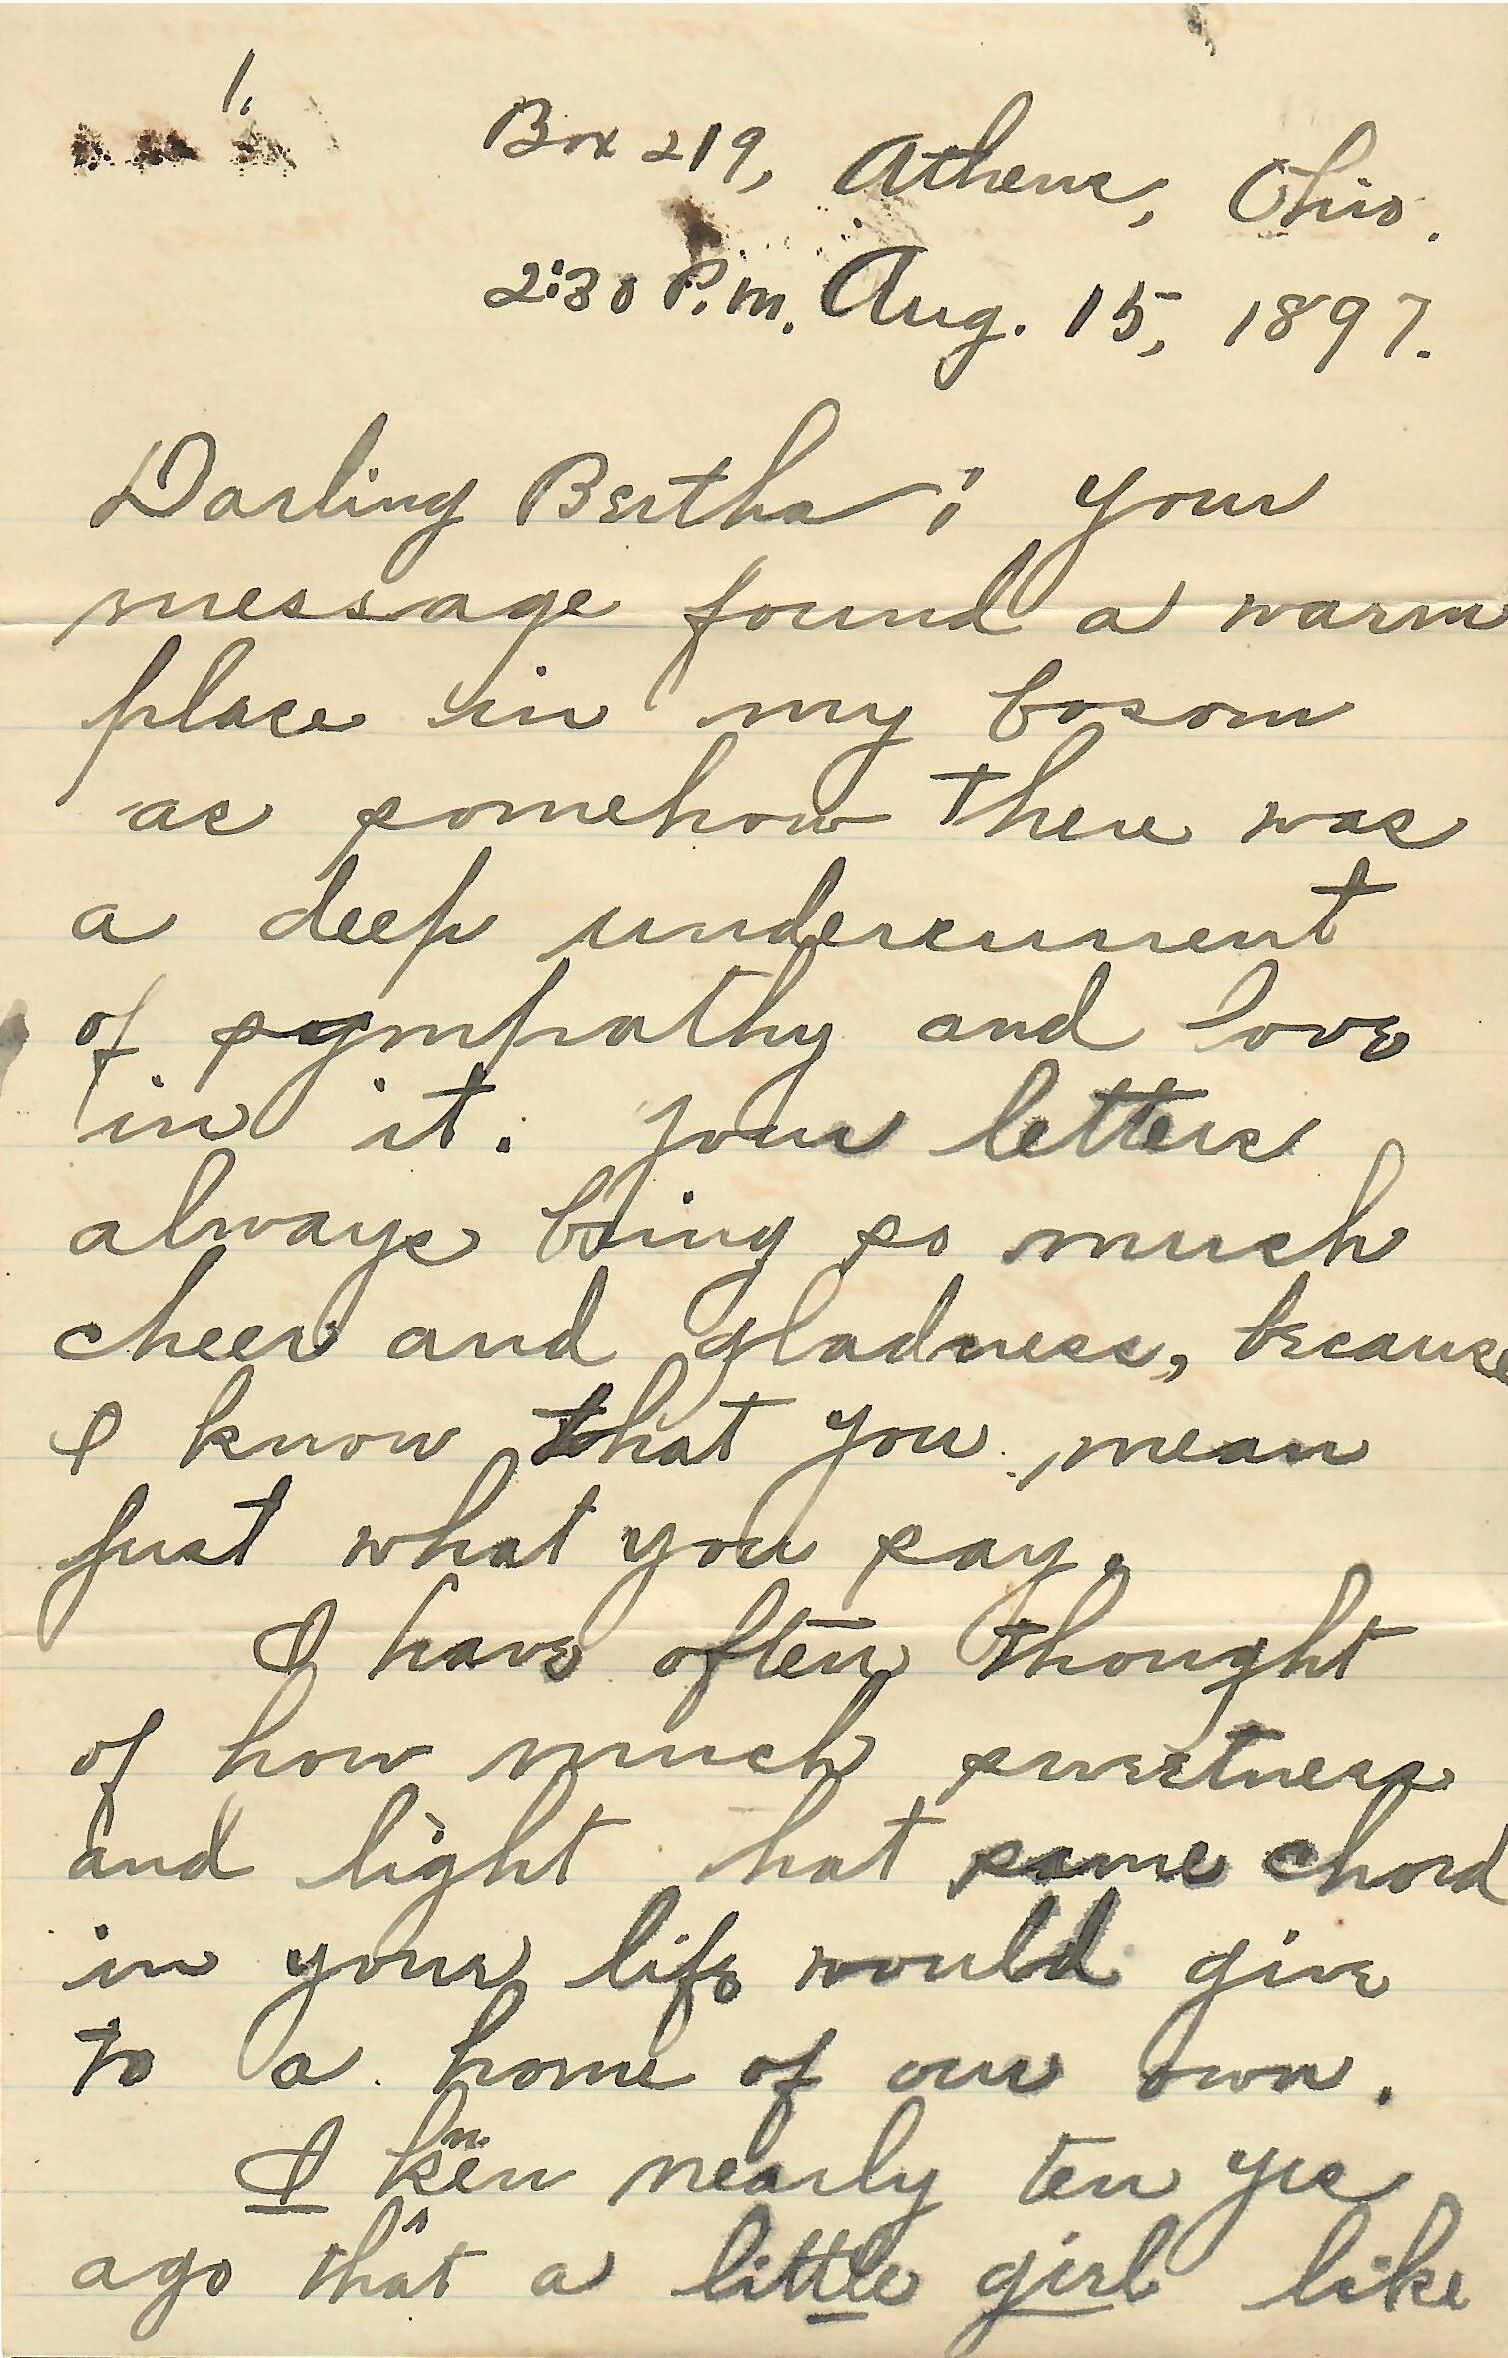 1.
Box 219, Athens, Ohio.
2:30 P.M. Aug. 15, 1897.
Darling Bertha; your
message found a warm
place in my bosom
as somehow there was
a deep undercurrent
of sympathy and love
in it. Your letters
always bring so much
cheer and gladness, because
I know that you mean
just what you say.
I have often thought
of how much sweetness
and light that same chord
in your life would give
to a home of our own.
I nearly ten yrs
ago that a little girl like